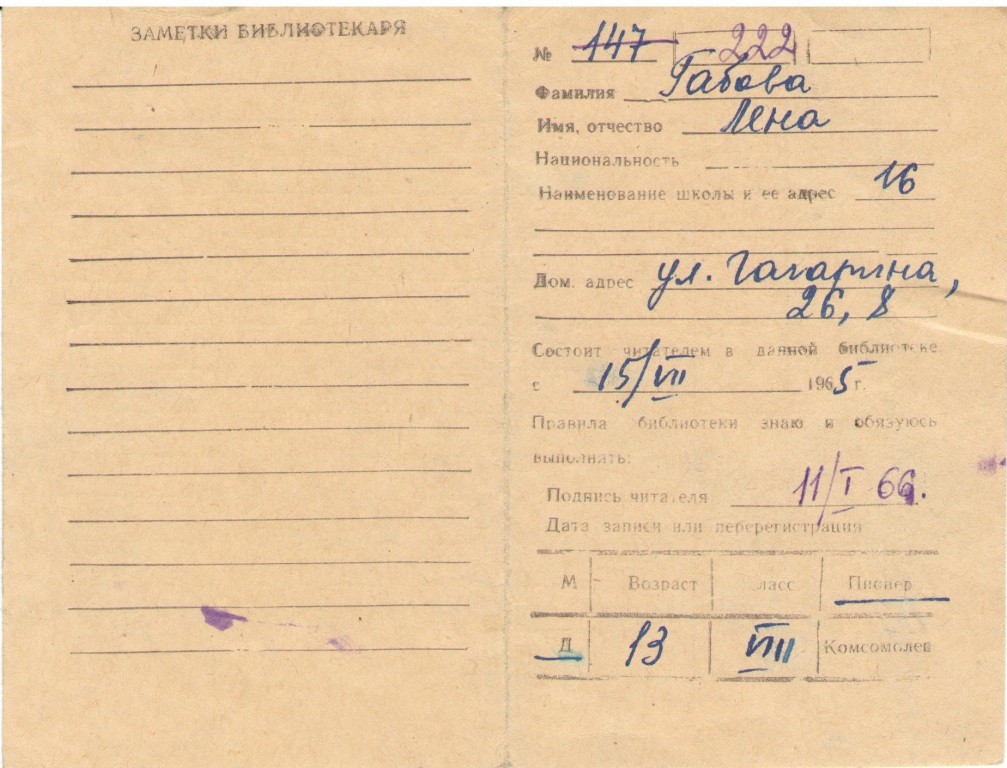 ЗАМЕТКИ БИБЛИОТЕКАРЯ
№ 147 222
Фамилия Габова
Имя, отчество Лена
Национальность
Наименование школы и ее адрес 16
Дом. адрес ул. Гагарина,
26, 8
Состоит читателем в данной библиотеке
с 15/VII 1965 г.
Правила библиотеки знаю и обязуюсь
выполнять:
Подпись читателя 11/I 66.
Дата записи или перерегистрация
М Возраст ласс Пионер
Д 13 VIII Комсомолец